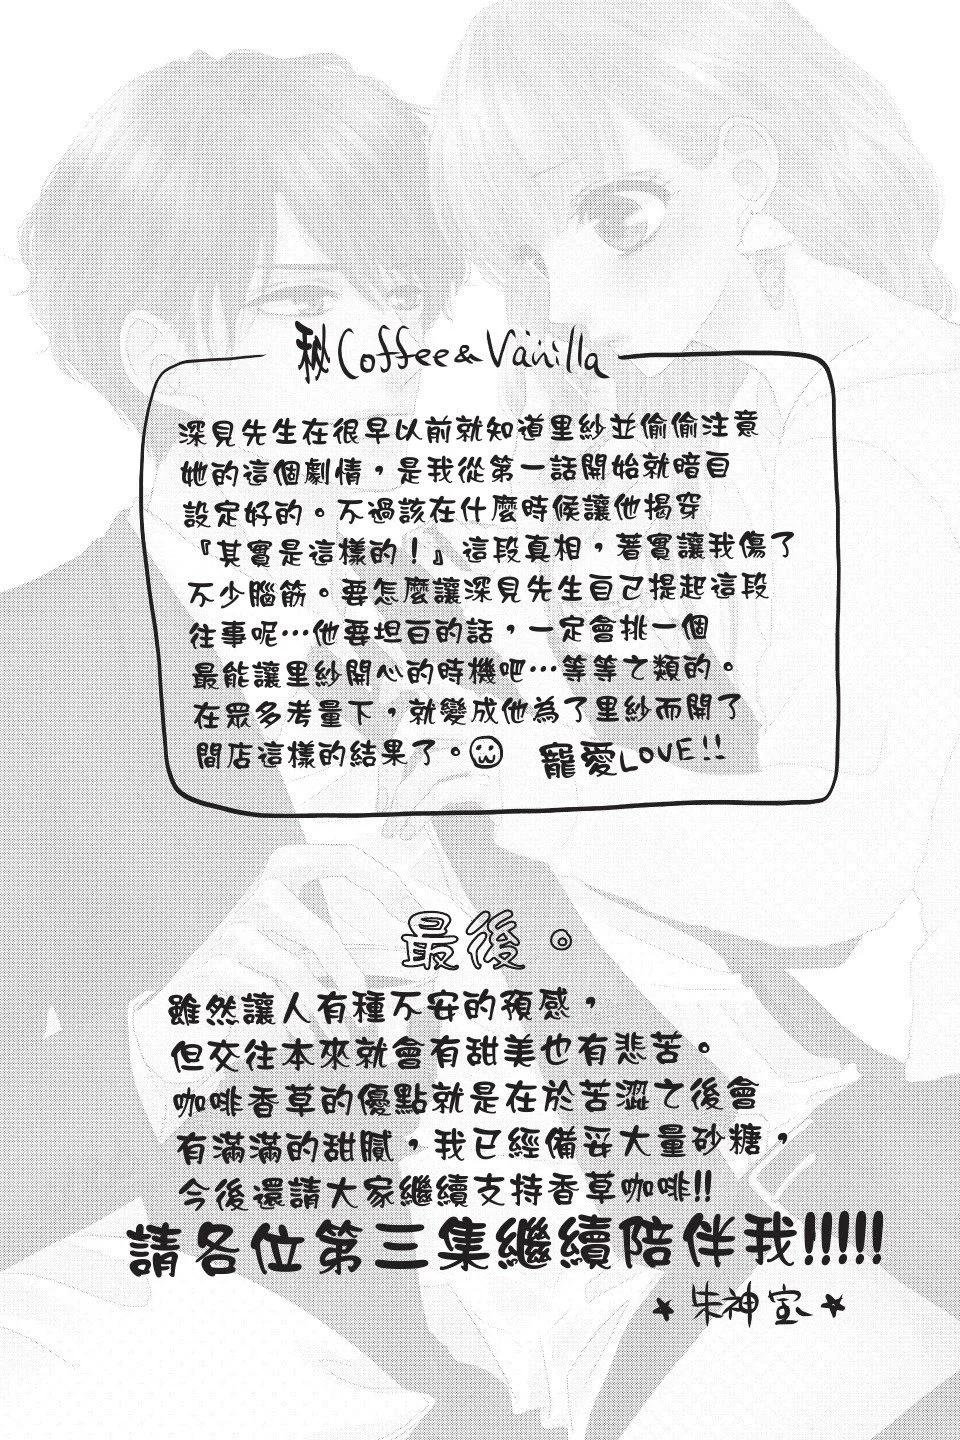 秘Coffee&Vanilla
深見先生在很早以前就知道里紗並偷偷注意
她的這個劇情，是我從第一話開始就暗自
設定好的。不過該在什麼時候讓他揭穿
『其實是這樣的！』這段真相，著實讓我傷了
不少腦筋。要怎麼讓深見先生自己提起這段
往事呢…他要坦白的話，一定會挑一個
最能讓里紗開心的時機吧…等等之類的。
在眾多考量下，就變成他為了里紗而開了
間店這樣的結果了。 寵愛LOVE!!
最後。
雖然讓人有種不安的預感，
但交往本來就會有甜美也有悲苦。
咖啡香草的優點就是在於苦澀之後會
有滿滿的甜膩，我已經備妥大量砂糖，
今後還請大家繼續支持香草咖啡!!
請各位第三集繼續陪伴我!!!!!
★ 朱神宝 ★